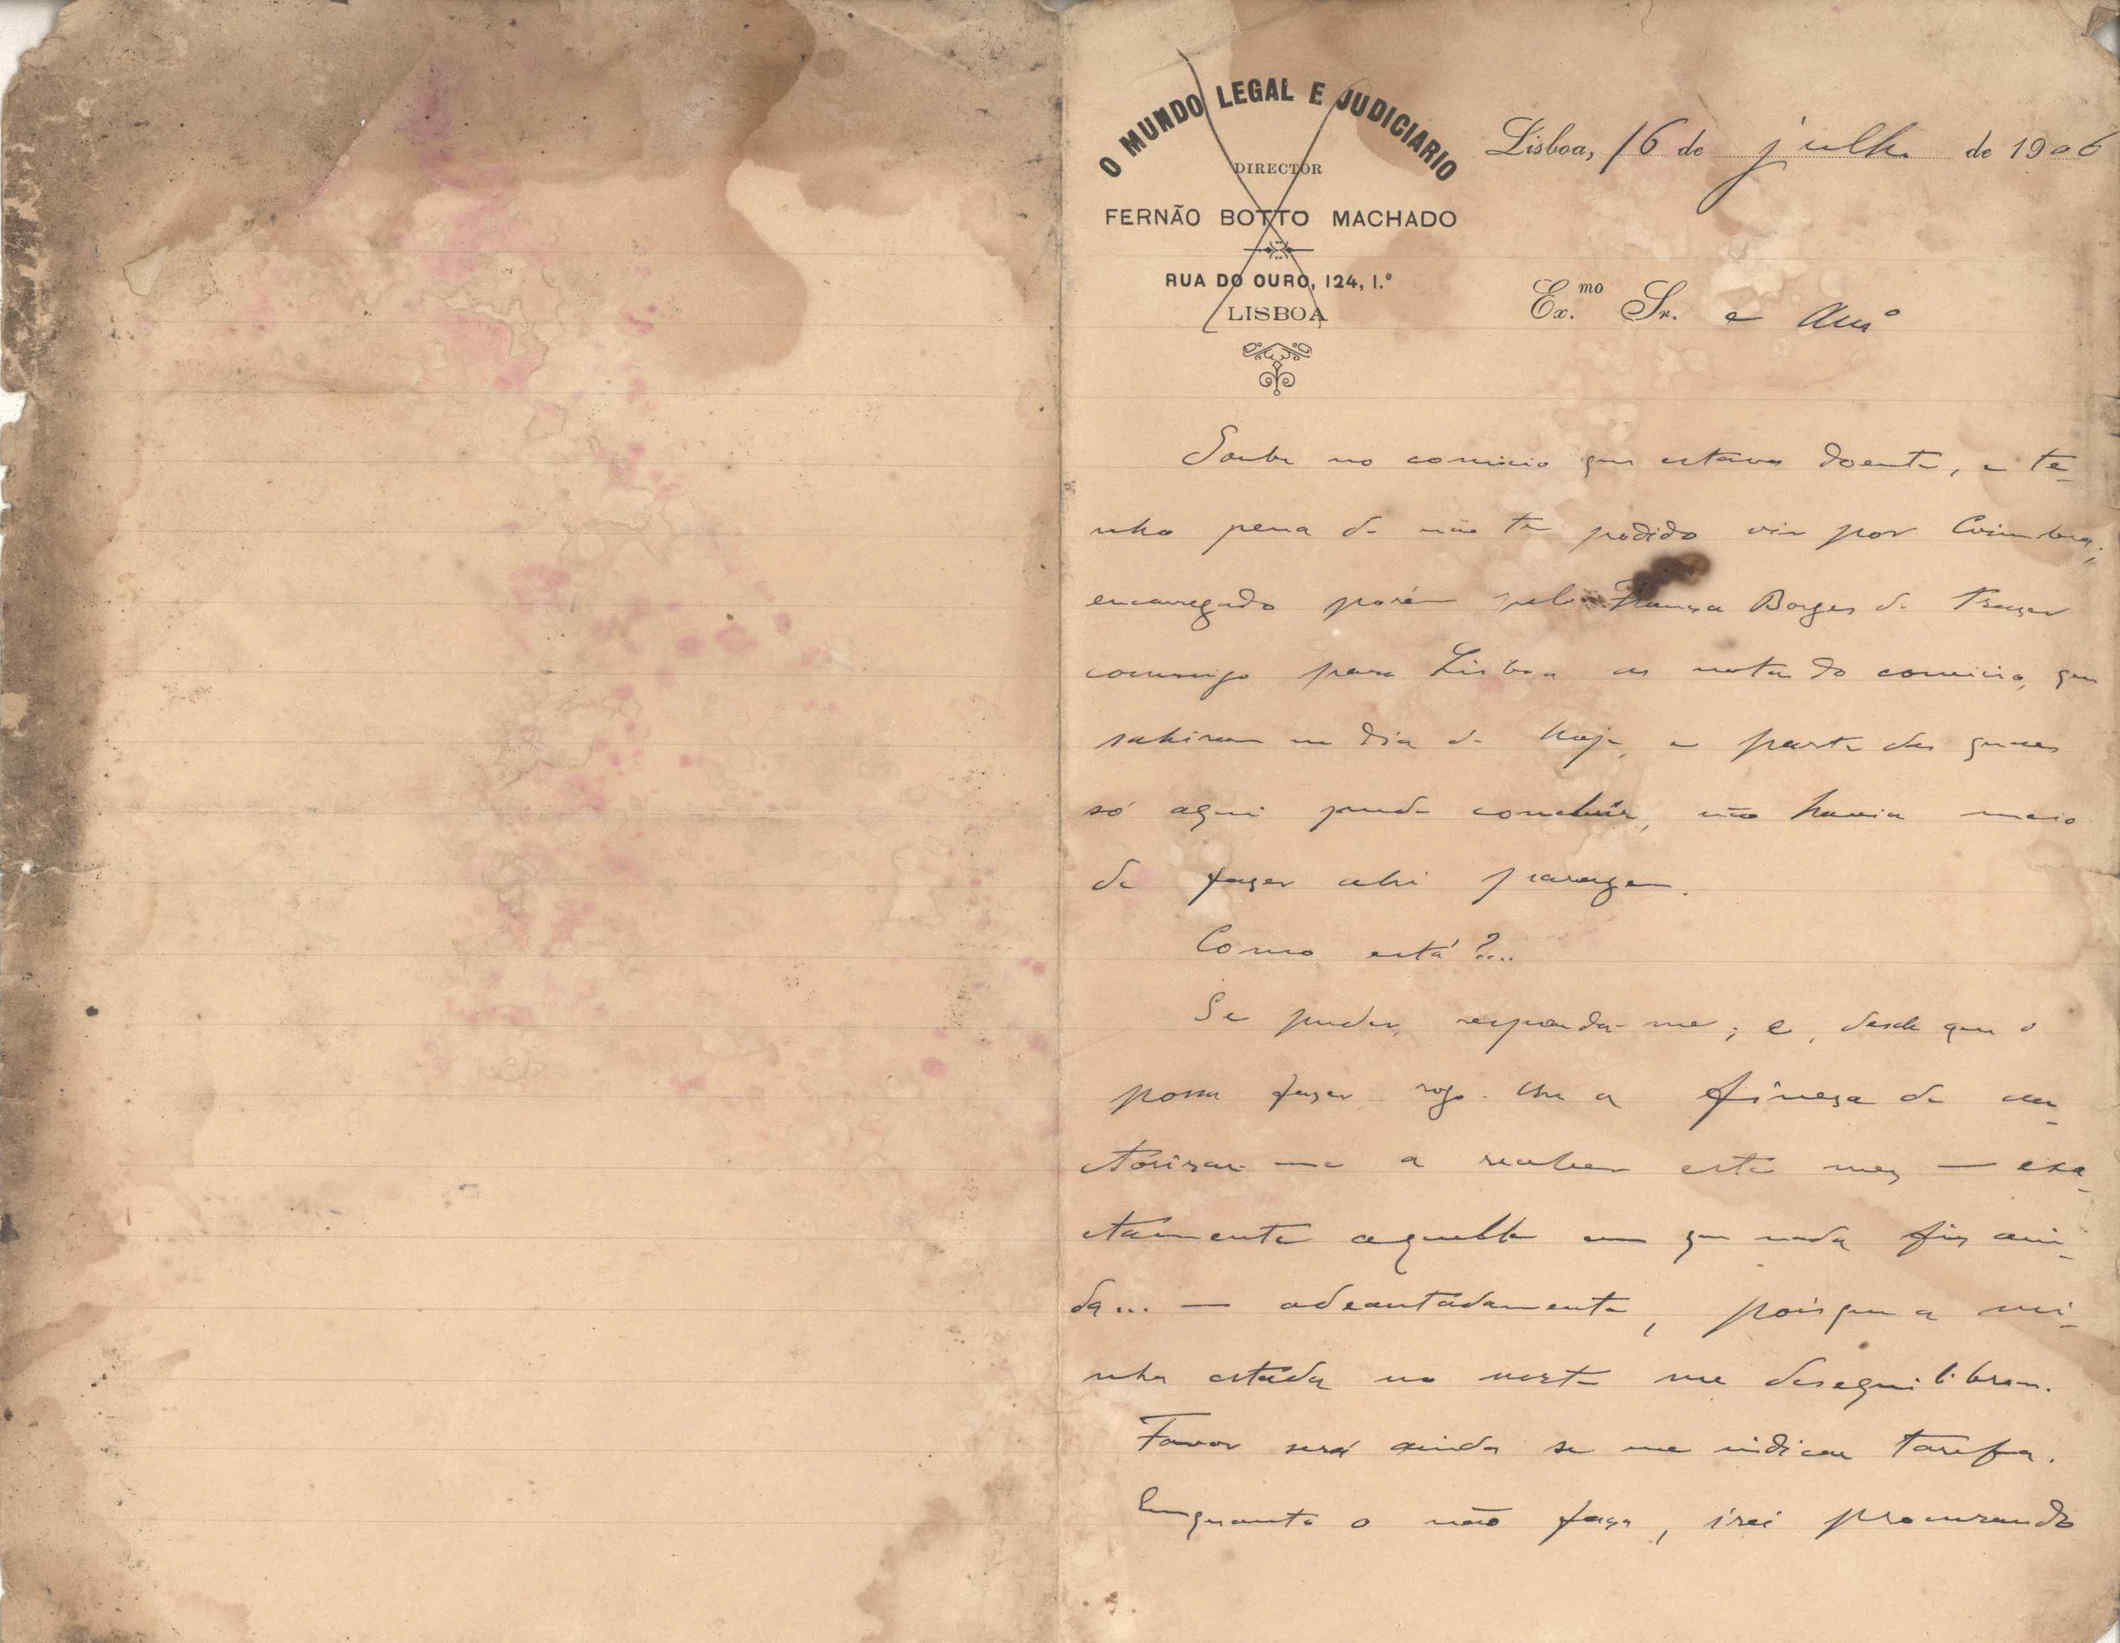 O MUNDO LEGAL E JUDICIARIO
DIRECTOR
FERNÃO BOTTO MACHADO
RUA DO OURO, 124, 1.º
LISBOA
Lisboa, 16 de julho de 1906
Ex.mo Sr. e Amº
Soube no comicio que estava doente, e te-
nho pena de não ter podido vir por Coimbra;
encarregado porém pelo França Borges de trazer
commigo para Lisboa as notas do comicio, que
sahiram no dia de hoje, e parte das quaes
só aqui pude concluir, não havia meio
de fazer ahi paragem.
Como está?...
Se puder, responda-me; e, desde que o
possa fazer rogo-lhe a fineza de au-
ctorisar-me a receber este mez — exa-
ctamente aquelle em que nada fiz ain-
da... — adeantadamente, pois que a mi-
nha estada no norte me desequilibrou.
Favor será ainda se me indicar tarefa.
Emquanto o não faça, irei procurando